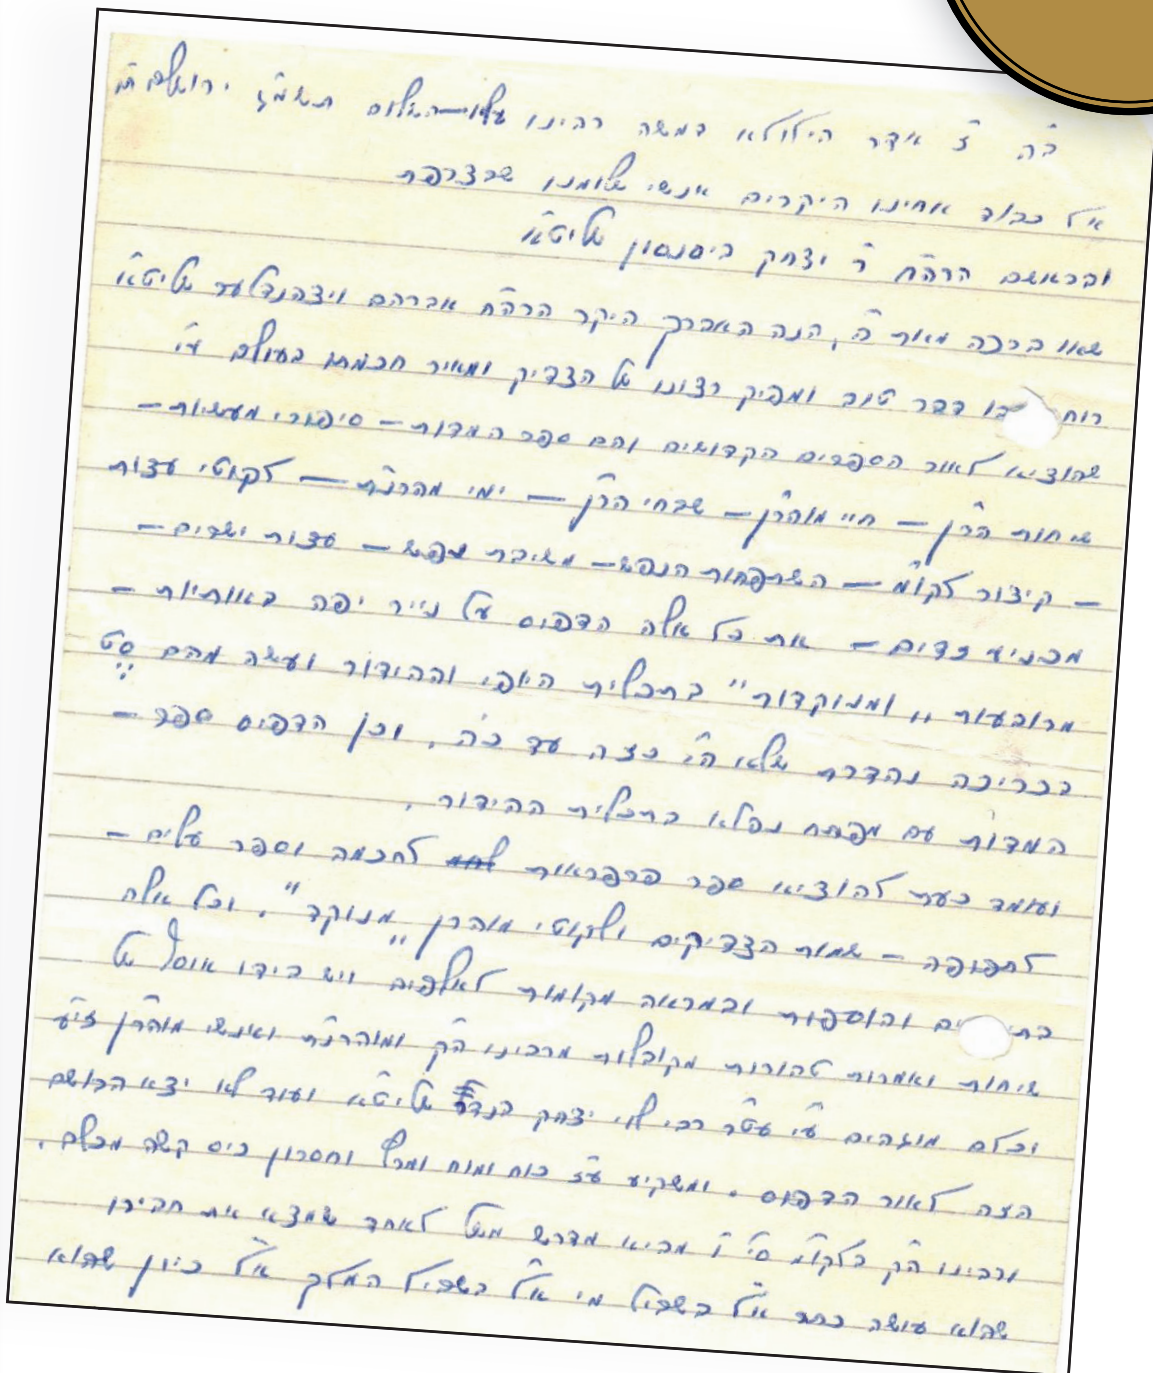 ב״ה ז׳ אדר הילולא דמשה רבינו עליו השלום תשמ״ז ירושלים ת״ו
אל כבוד אחינו היקרים אנשי שלומנו שבצרפת
ובראשם הרה״ח ר׳ יצחק ביסנסון שליט״א
שאו ברכה מאת ה׳, הנה האברך היקר הרה״ח אברהם ויצהנדלער שליט״א
רוח בו דבר טוב ומפיק רצונו של הצדיק ומאיר חכמתו בעולם ע״י
שהוציא לאור הספרים הקדושים והם ספר המדות – סיפורי מעשיות –
שיחות הר״ן – חיי מוהר״ן – שבחי הר״ן – ימי מהרנ״ת – לקוטי עצות
– קיצור לקו״מ – השתפחות הנפש – משיבת נפש – עצות ישרים –
מכניע זדים – את כל אלה הדפיס על נייר יפה באותיות –
מרובעות ,, ומנוקדות" בתכלית היופי וההידור ועשה מהם סט
בכריכה נהדרת שלא הי׳ כצה עד כה. וכן הדפיס ספר –
המדות עם מפתח נפלא בתכלית ההידור.
ועומד כעת להוציא ספר פרפראות לחכמה וספר עלים –
לתרופה – שמות הצדיקים ולקוטי מוהרן ,,מנוקד". וכל אלה
ים והוספות ובמראה מקומות לאלפים ויש בידו אוסף של
שיחות ואמרות טהורות מקובלות מרבינו הק׳ ומוהרנ״ת ואנשי מוהר״ן זי״ע
וכלם מוגהים ע״י עט״ר רבי לוי יצחק בנדר שליט״א ועוד לא יצא הבושם
הזה לאור הדפוס. ומשקיע ע״ז כוח ומוח ומרץ וחסרון כיס קשה מכלם.
ורבינו הק׳ בלקו״מ סי׳ ו׳ מביא מדרש משל לאחד שמצא את חבירו
שהוא עושה כתר א״ל בשביל מי א״ל בשביל המלך א״ל כיון שהוא